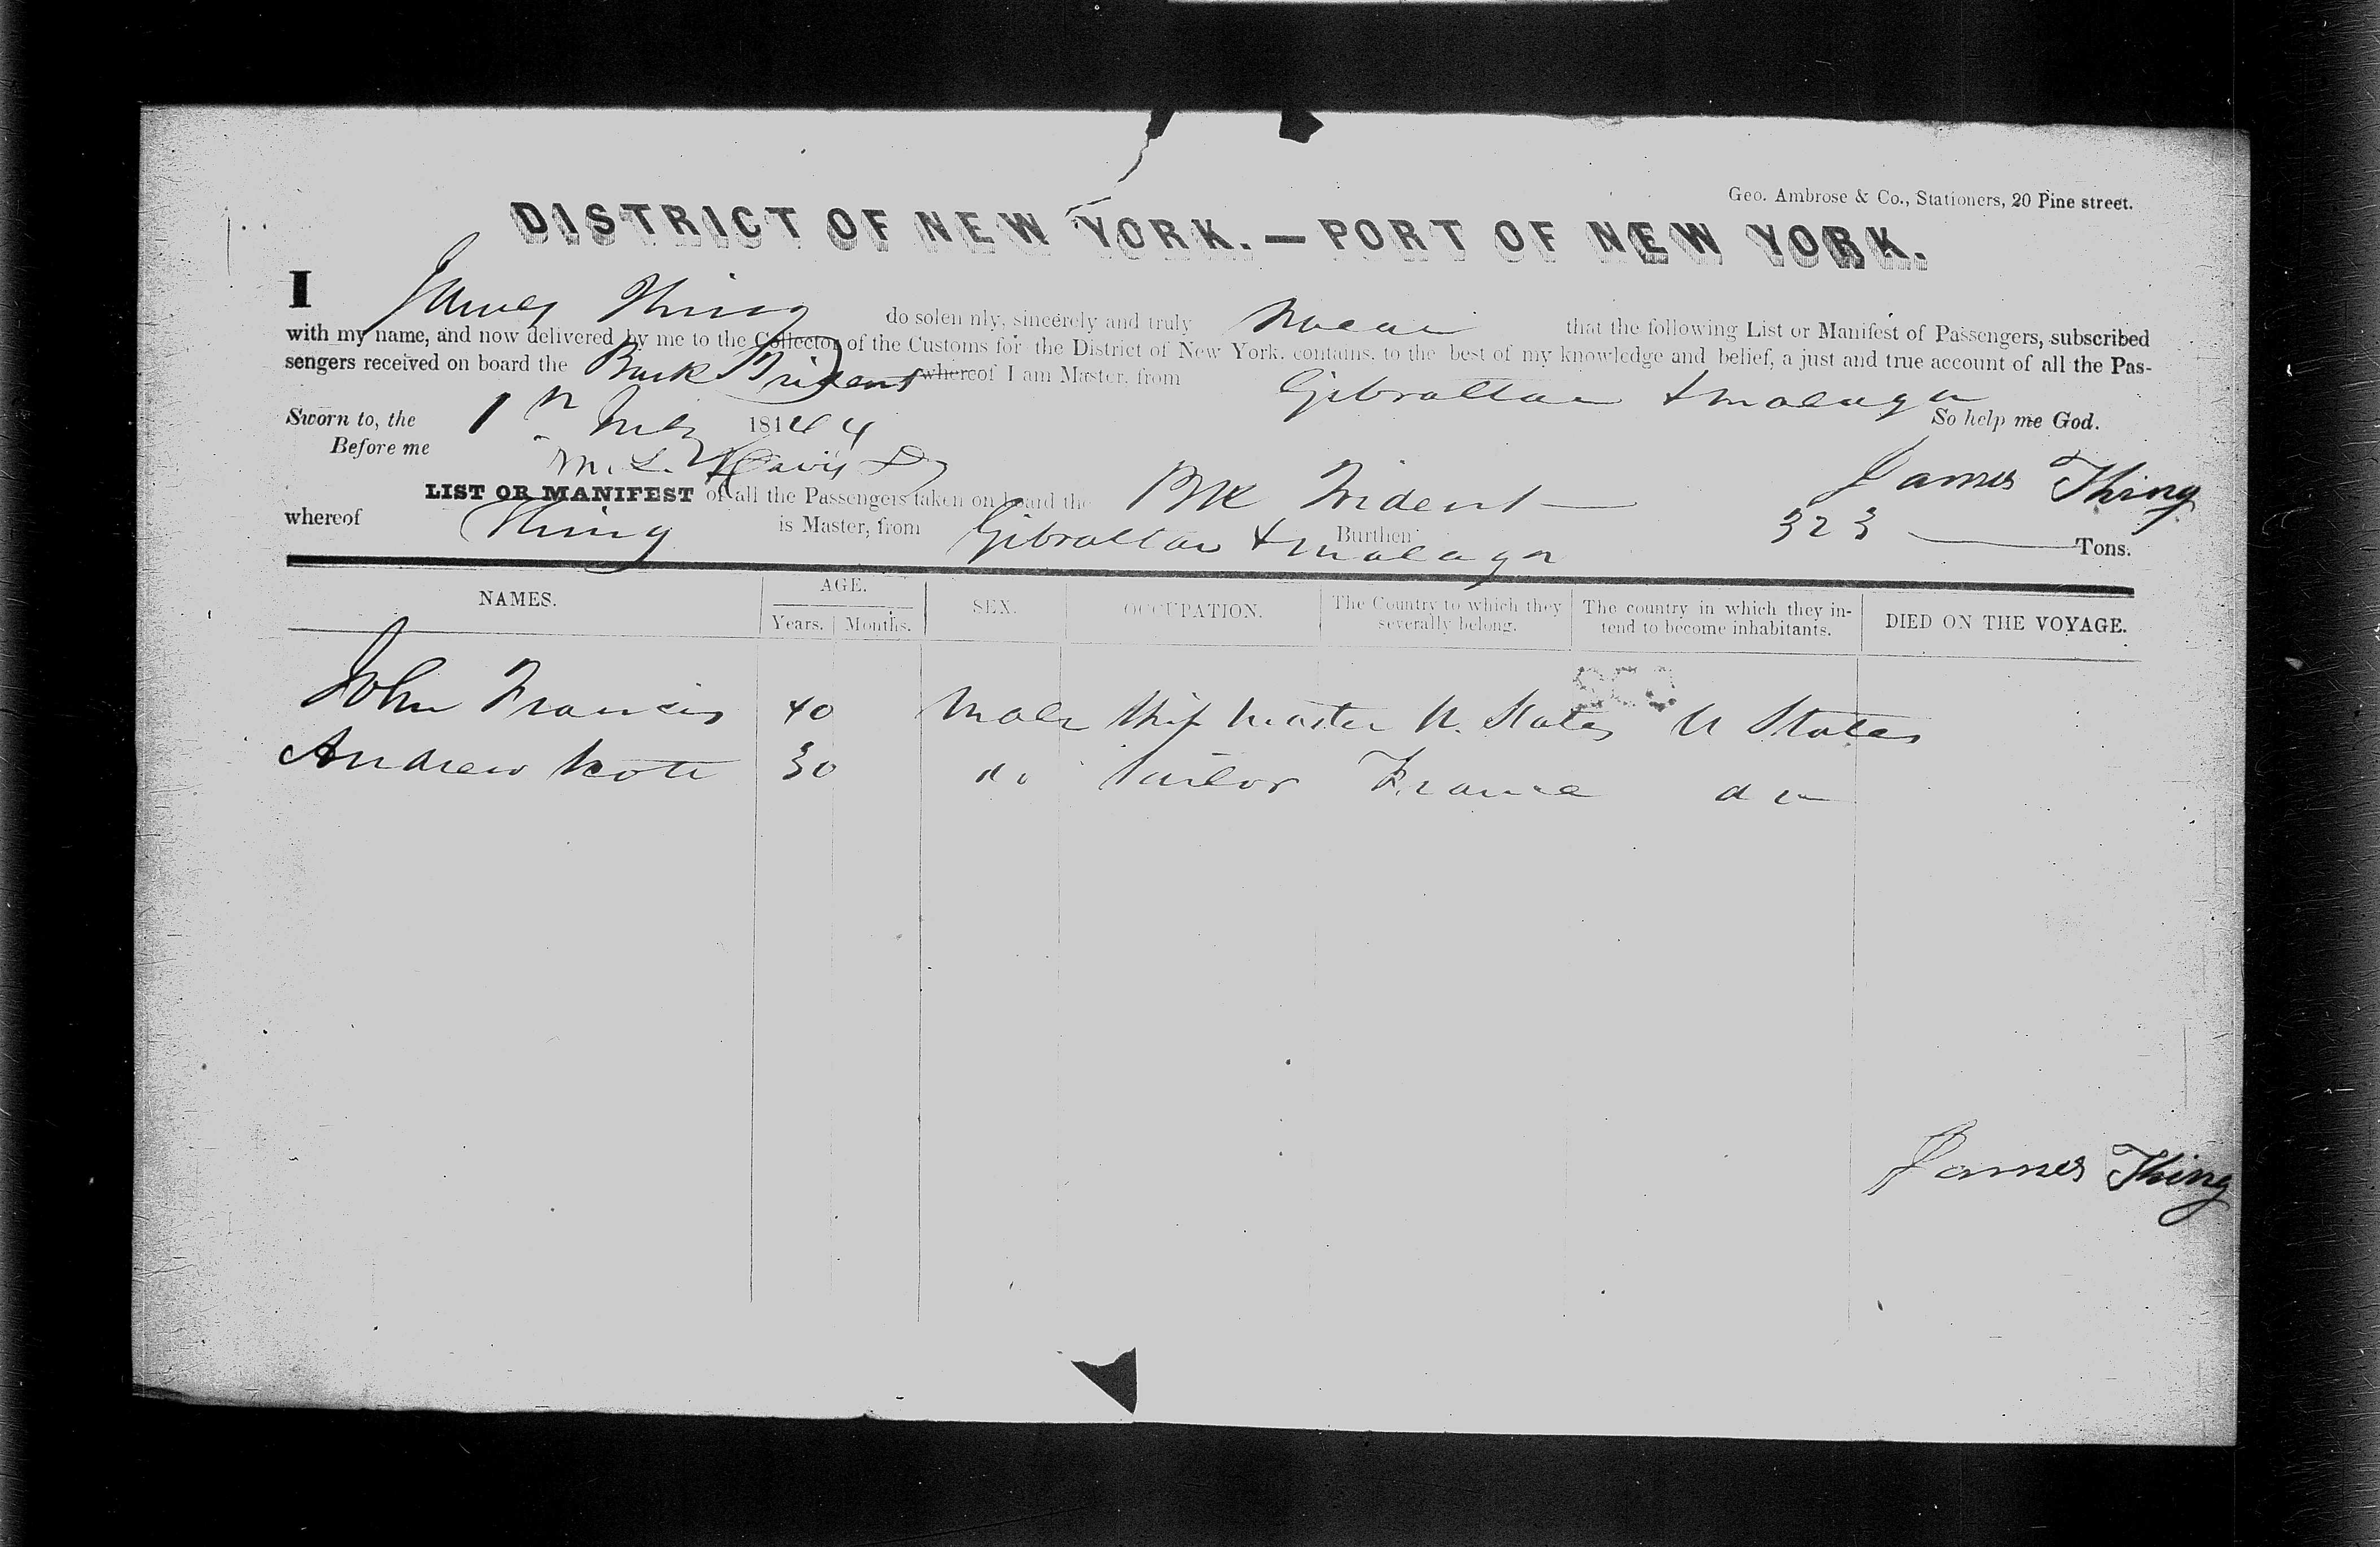 Geo. Ambrose & Co., Stationers, 20 Pine street.
DISTRICT OF NEW YORK.—PORT OF NEW YORK.
I James Thing do solemnly, sincerely and truly swear that the following List or Manifest of Passengers, subscribed
with my name, and now delivered by me to the Collector of the Customs for the District of New York, contains, to the best of my knowledge and belief, a just and true account of all the Pas-
sengers received on board the Bark Trident whereof I am Master, from Gibraltar & Malaga
Sworn to, the 1st July 1844 So help me God.
Before me M. L. Davis James Thing
LIST OR MANIFEST of all the Passengers taken on board the Bk Trident
whereof Thing is Master, from Gibraltar & Malaga Burthen 323 Tons.
NAMES. AGE. SEX. OCCUPATION. The Country to which they severally belong. The country in which they in-tend to become inhabitants. DIED ON THE VOYAGE.
Years. Months.
John Francis 40 Male Ship Master U. States U States
Andrew 30 do France do
James Thing